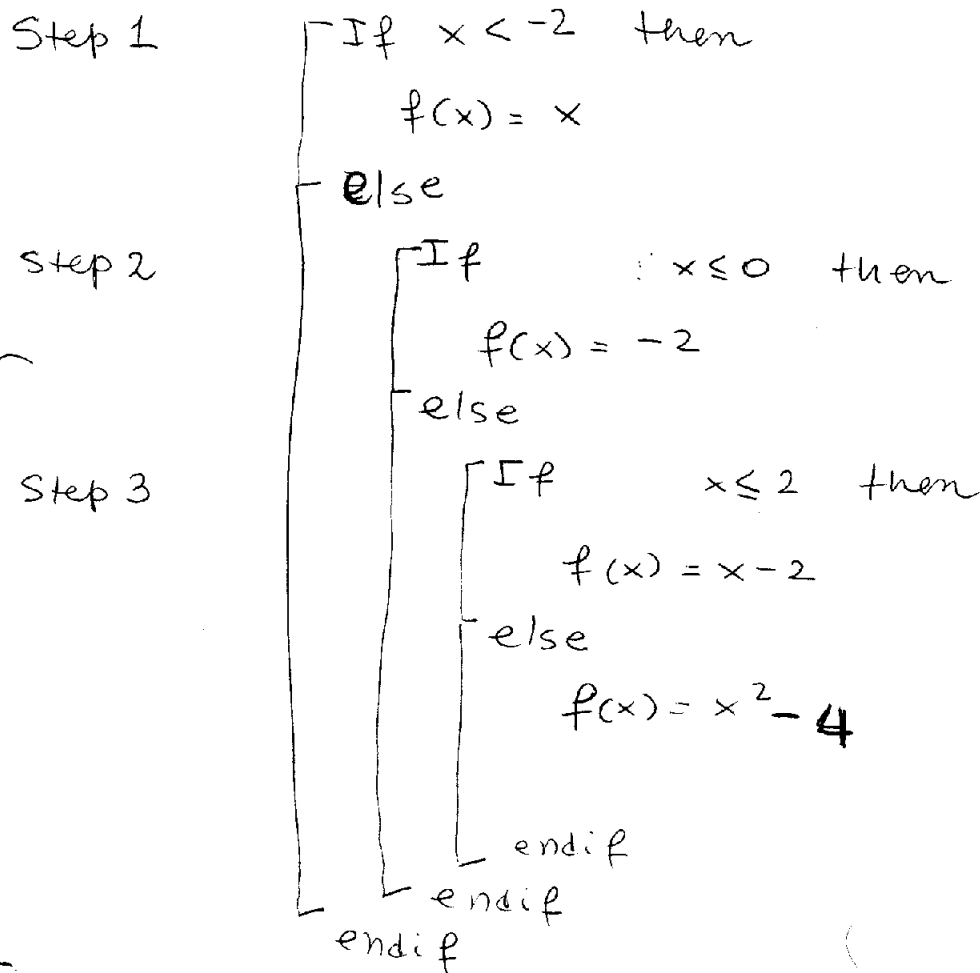 Step 1 If x < -2 then
f(x) = x
else
Step 2 If x ≤ 0 then
f(x) = -2
else
Step 3 If x ≤ 2 then
f(x) = x - 2
else
f(x) = x² - 4
endif
endif
endif